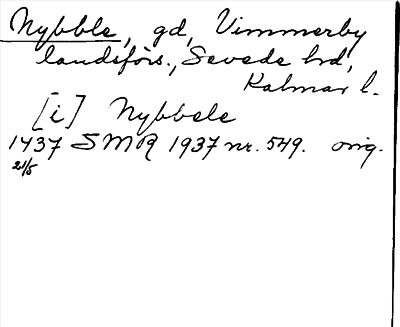 Nybble, gd, Vimmerby
landsförs., Sevede hd,
Kalmar l.
[i] Nybbele
1437 SMR 1937 nr. 549. orig.
21/5